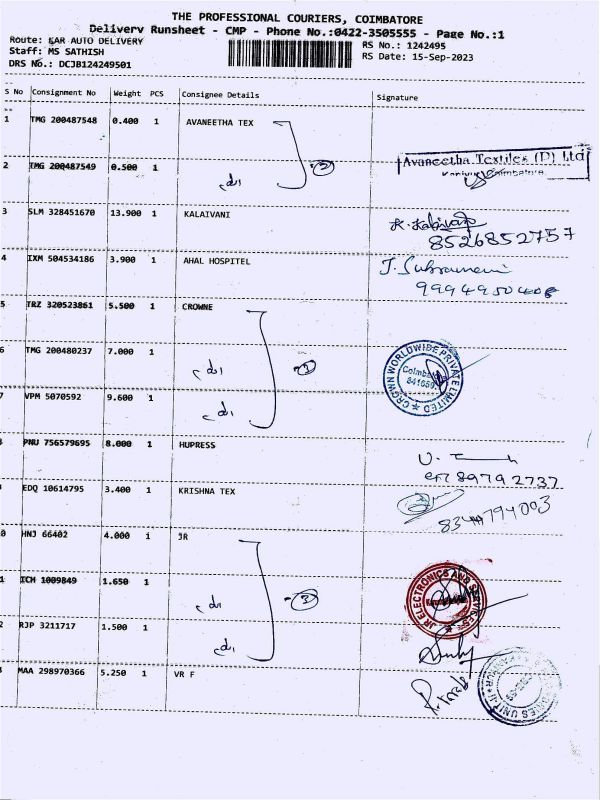 THE PROFESSIONAL COURIERS, COIMBATORE
Delivery Runsheet - CMP - Phone No.:0422-3505555 - Page No.:1
Route: KAR AUTO DELIVERY
RS No.: 1242495
Staff: MS SATHISH
RS Date: 15-Sep-2023
DRS No.: DCJB124249501
S No Consignment No Weight PCS Consignee Details Signature
1 TMG 200487548 0.400 1 AVANEETHA TEX
Avaneetha Textiles (P) Ltd
2 TMG 200487549 0.500 1
Coimbatore
3 SLM 328451670 13.900 1 KALAIVANI
8526852757
4 IXM 504534186 3.900 1 AHAL HOSPITEL
5 TRZ 320523861 5.500 1 CROWNE
6 TMG 200480237 7.000 1
CROWN WORLDWIDE PRIVATE LIMITED
7 VPM 5070592 9.600 1
PNU 756579695 8.000 1 HUPRESS
EDQ 10614795 3.400 1 KRISHNA TEX
0 HNJ 66402 4.000 1 JR
1 ICH 1009849 1.650 1
JR ELECTRONICS AND SERVICES
2 RJP 3211717 1.500 1
MAA 298970366 5.250 1 VR F